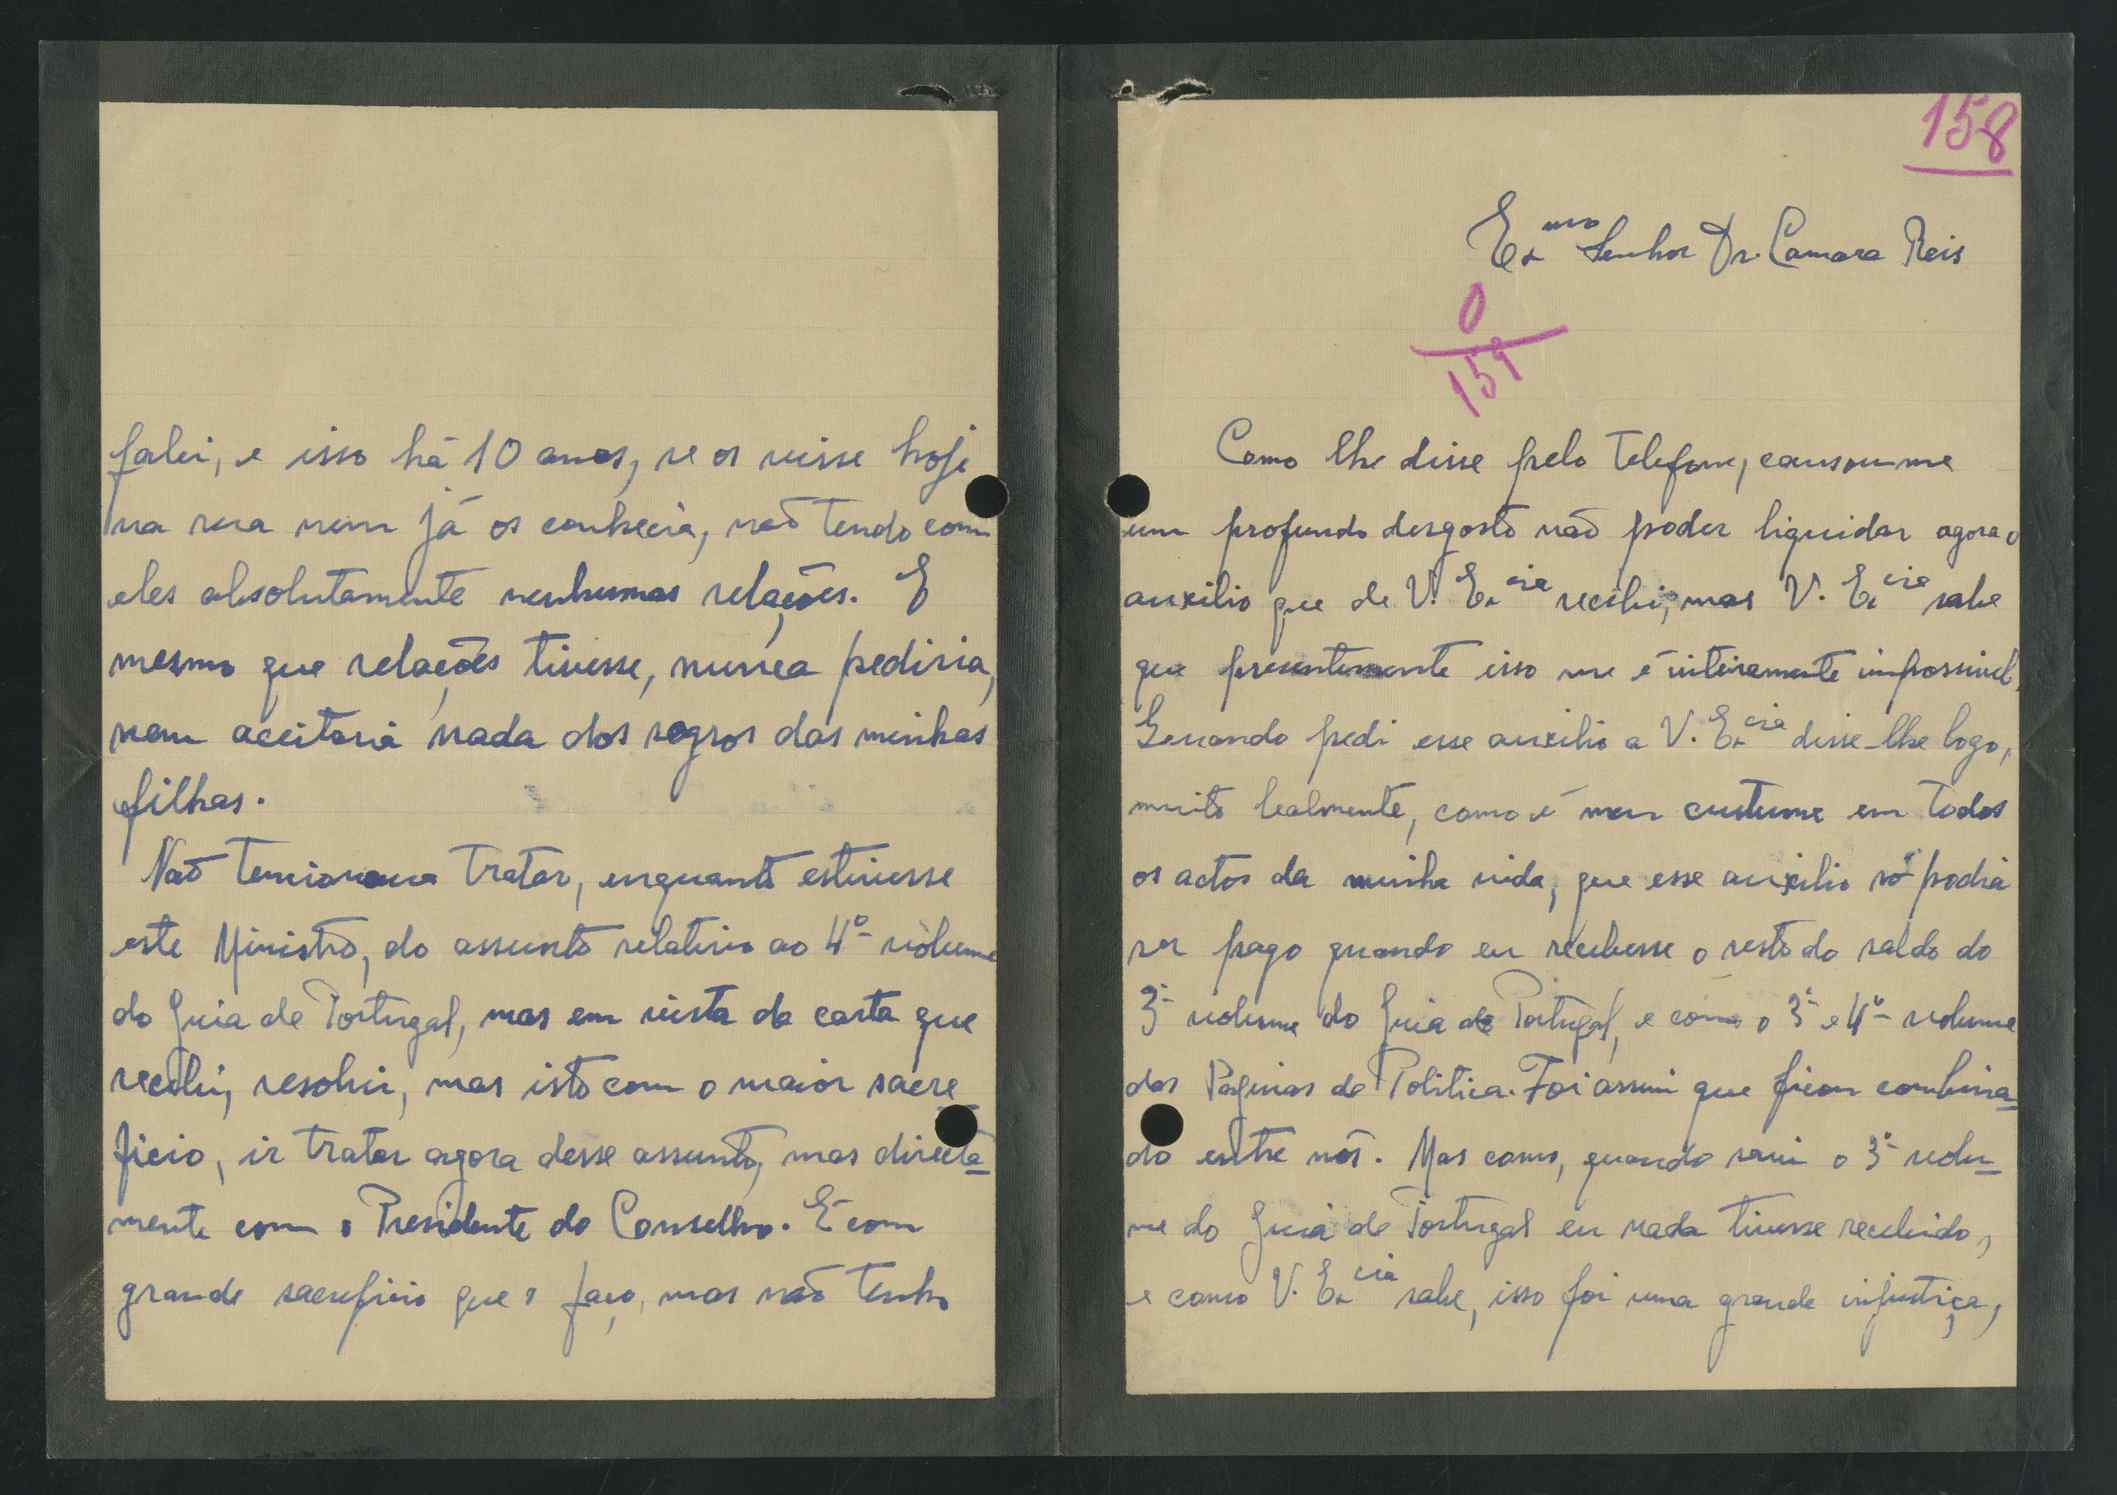 falei, e isso há 10 anos, se os visse hoje
na rua nem já os conhecia, não tendo com
eles absolutamente nenhumas relações. E
mesmo que relações tivesse, nunca pediria,
nem aceitaria nada dos sogros das minhas
filhas.
Não tratar, enquanto estivesse
este Ministro, do assunto relativo ao 4º volume
do Guia de Portugal, mas em vista da carta que
recebi, resolvi, mas isto com o maior sacre
ficio, ir tratar agora desse assunto, mas directa-
mente com o Presidente do Conselho. É com
grande sacreficio que o faço, mas não tenho
158
Exmo Senhor Dr. Camara Reis
0
159
Como lhe disse pelo telefone, causou-me
um profundo desgosto não poder liquidar agora o
auxilio que de V. Excia recebi, mas V. Excia sabe
que presentemente isso me é inteiramente impossivel.
Quando pedi esse auxilio a V. Excia disse-lhe logo,
muito lealmente, como é meu custume em todos
os actos da minha vida, que esse auxilio só podia
ser pago quando eu recebesse o resto do saldo do
3º volume do Guia de Portugal, e como o 3º e 4º volume
das Paginas de Politica. Foi assim que ficou combina-
do entre nós. Mas como, quando saiu o 3º volu-
me do Guia de Portugal eu nada tivesse recebido,
e como V. Excia sabe, isso foi uma grande injustiça,